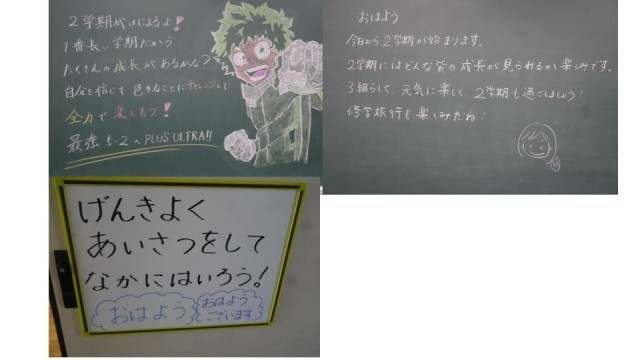 2学期がはじまるよ!
1番長い学期だから
たくさんの成長があるかな?
自分を信じて 色々なことにチャレンジして
全力で楽しもう!
最強 5-2 へ PLUS ULTRA!!
おはよう
今日から2学期が始まります。
2学期にはどんな皆の成長が見られるか楽しみです。
3組らしく、元気に楽しく2学期も過ごしましょう!
修学旅行も楽しみだね!
げんきよく
あいさつをして
なかにはいろう!
おはよう
おはよう
ございます